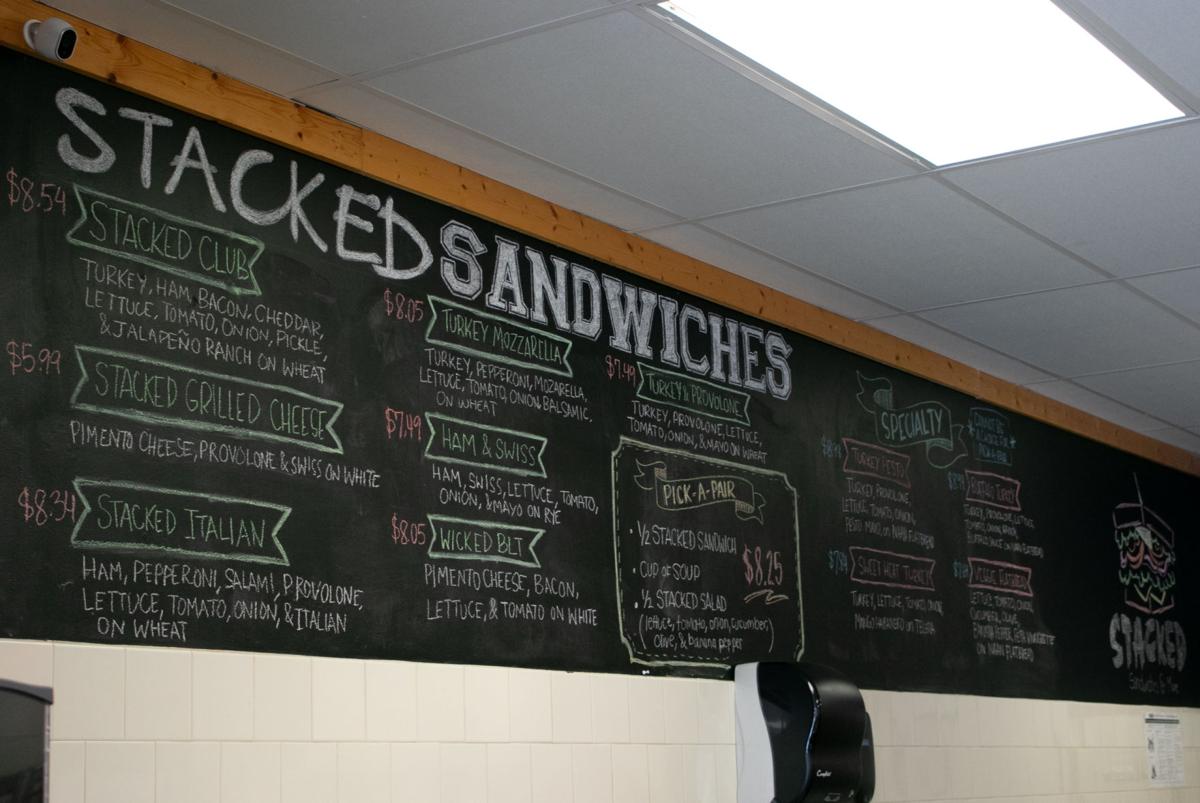 STACKED SANDWICHES
$8.54
STACKED CLUB
TURKEY, HAM, BACON, CHEDDAR,
LETTUCE, TOMATO, ONION, PICKLE,
& JALAPEÑO RANCH ON WHEAT
$5.99
STACKED GRILLED CHEESE
PIMENTO CHEESE, PROVOLONE & SWISS ON WHITE
$8.34
STACKED ITALIAN
HAM, PEPPERONI, SALAMI, PROVOLONE,
LETTUCE, TOMATO, ONION, & ITALIAN
ON WHEAT
$8.05
TURKEY MOZZARELLA
TURKEY, PEPPERONI, MOZARELLA,
LETTUCE, TOMATO, ONION, BALSAMIC,
ON WHEAT
$7.49
HAM & SWISS
HAM, SWISS, LETTUCE, TOMATO,
ONION, & MAYO ON RYE
$8.05
WICKED BLT
PIMENTO CHEESE, BACON,
LETTUCE, & TOMATO ON WHITE
$7.49
TURKEY & PROVOLONE
TURKEY, PROVOLONE, LETTUCE,
TOMATO, ONION, & MAYO ON WHEAT
PICK-A-PAIR
• 1/2 STACKED SANDWICH
• CUP OF SOUP
$8.25
• 1/2 STACKED SALAD
(lettuce, tomato, onion, cucumber,
olive, & banana pepper)
SPECIALTY
TURKEY PESTO
TURKEY, PROVOLONE,
LETTUCE, TOMATO, ONION,
PESTO MAYO ON NAAN FLATBREAD
SWEET HEAT TURKEY
TURKEY, LETTUCE, TOMATO, ONION,
MANGO HABANERO ON TELERA
BUFFALO TURKEY
TURKEY, PROVOLONE, LETTUCE
TOMATO, ONION, RANCH,
BUFFALO SAUCE ON NAAN FLATBREAD
VEGGIE FLATBREAD
LETTUCE, TOMATO, ONION,
CUCUMBER, OLIVE,
BANANA PEPPER,
ON NAAN FLATBREAD
STACKED
Sandwiches & More